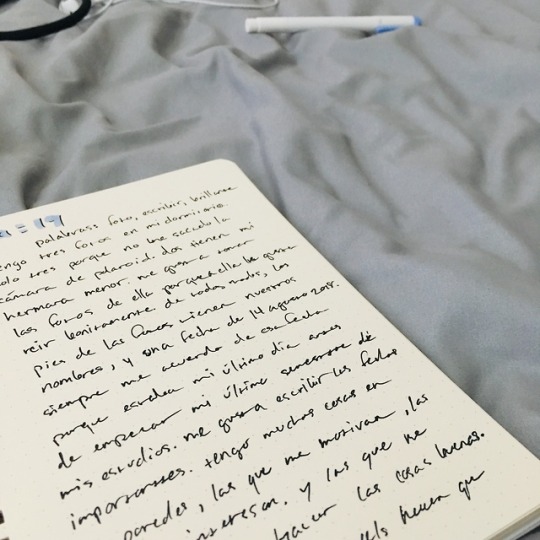 = 19
palabras: foto, escribir, brillante
tengo tres fotos en mi dormitorio.
solo tres porque no he sacado la
cámara de polaroid. dos tienen mi
hermana menor. me gusta tomar
las fotos de ella porque a ella le gusta
reir bonitamente de todos modos. los
pies de las fotos tienen nuestros
nombres, y una fecha de 14 agosto 2018.
siempre me acuerdo de esa fecha
porque estaba mi último día antes
de empezar mi último semestre de
mis estudios. me gusta escribir las fechas
importantes. tengo muchas cosas en
paredes, las que me motivan, las
interesan. y las que me
hacer las cosas buenas.
hacen que